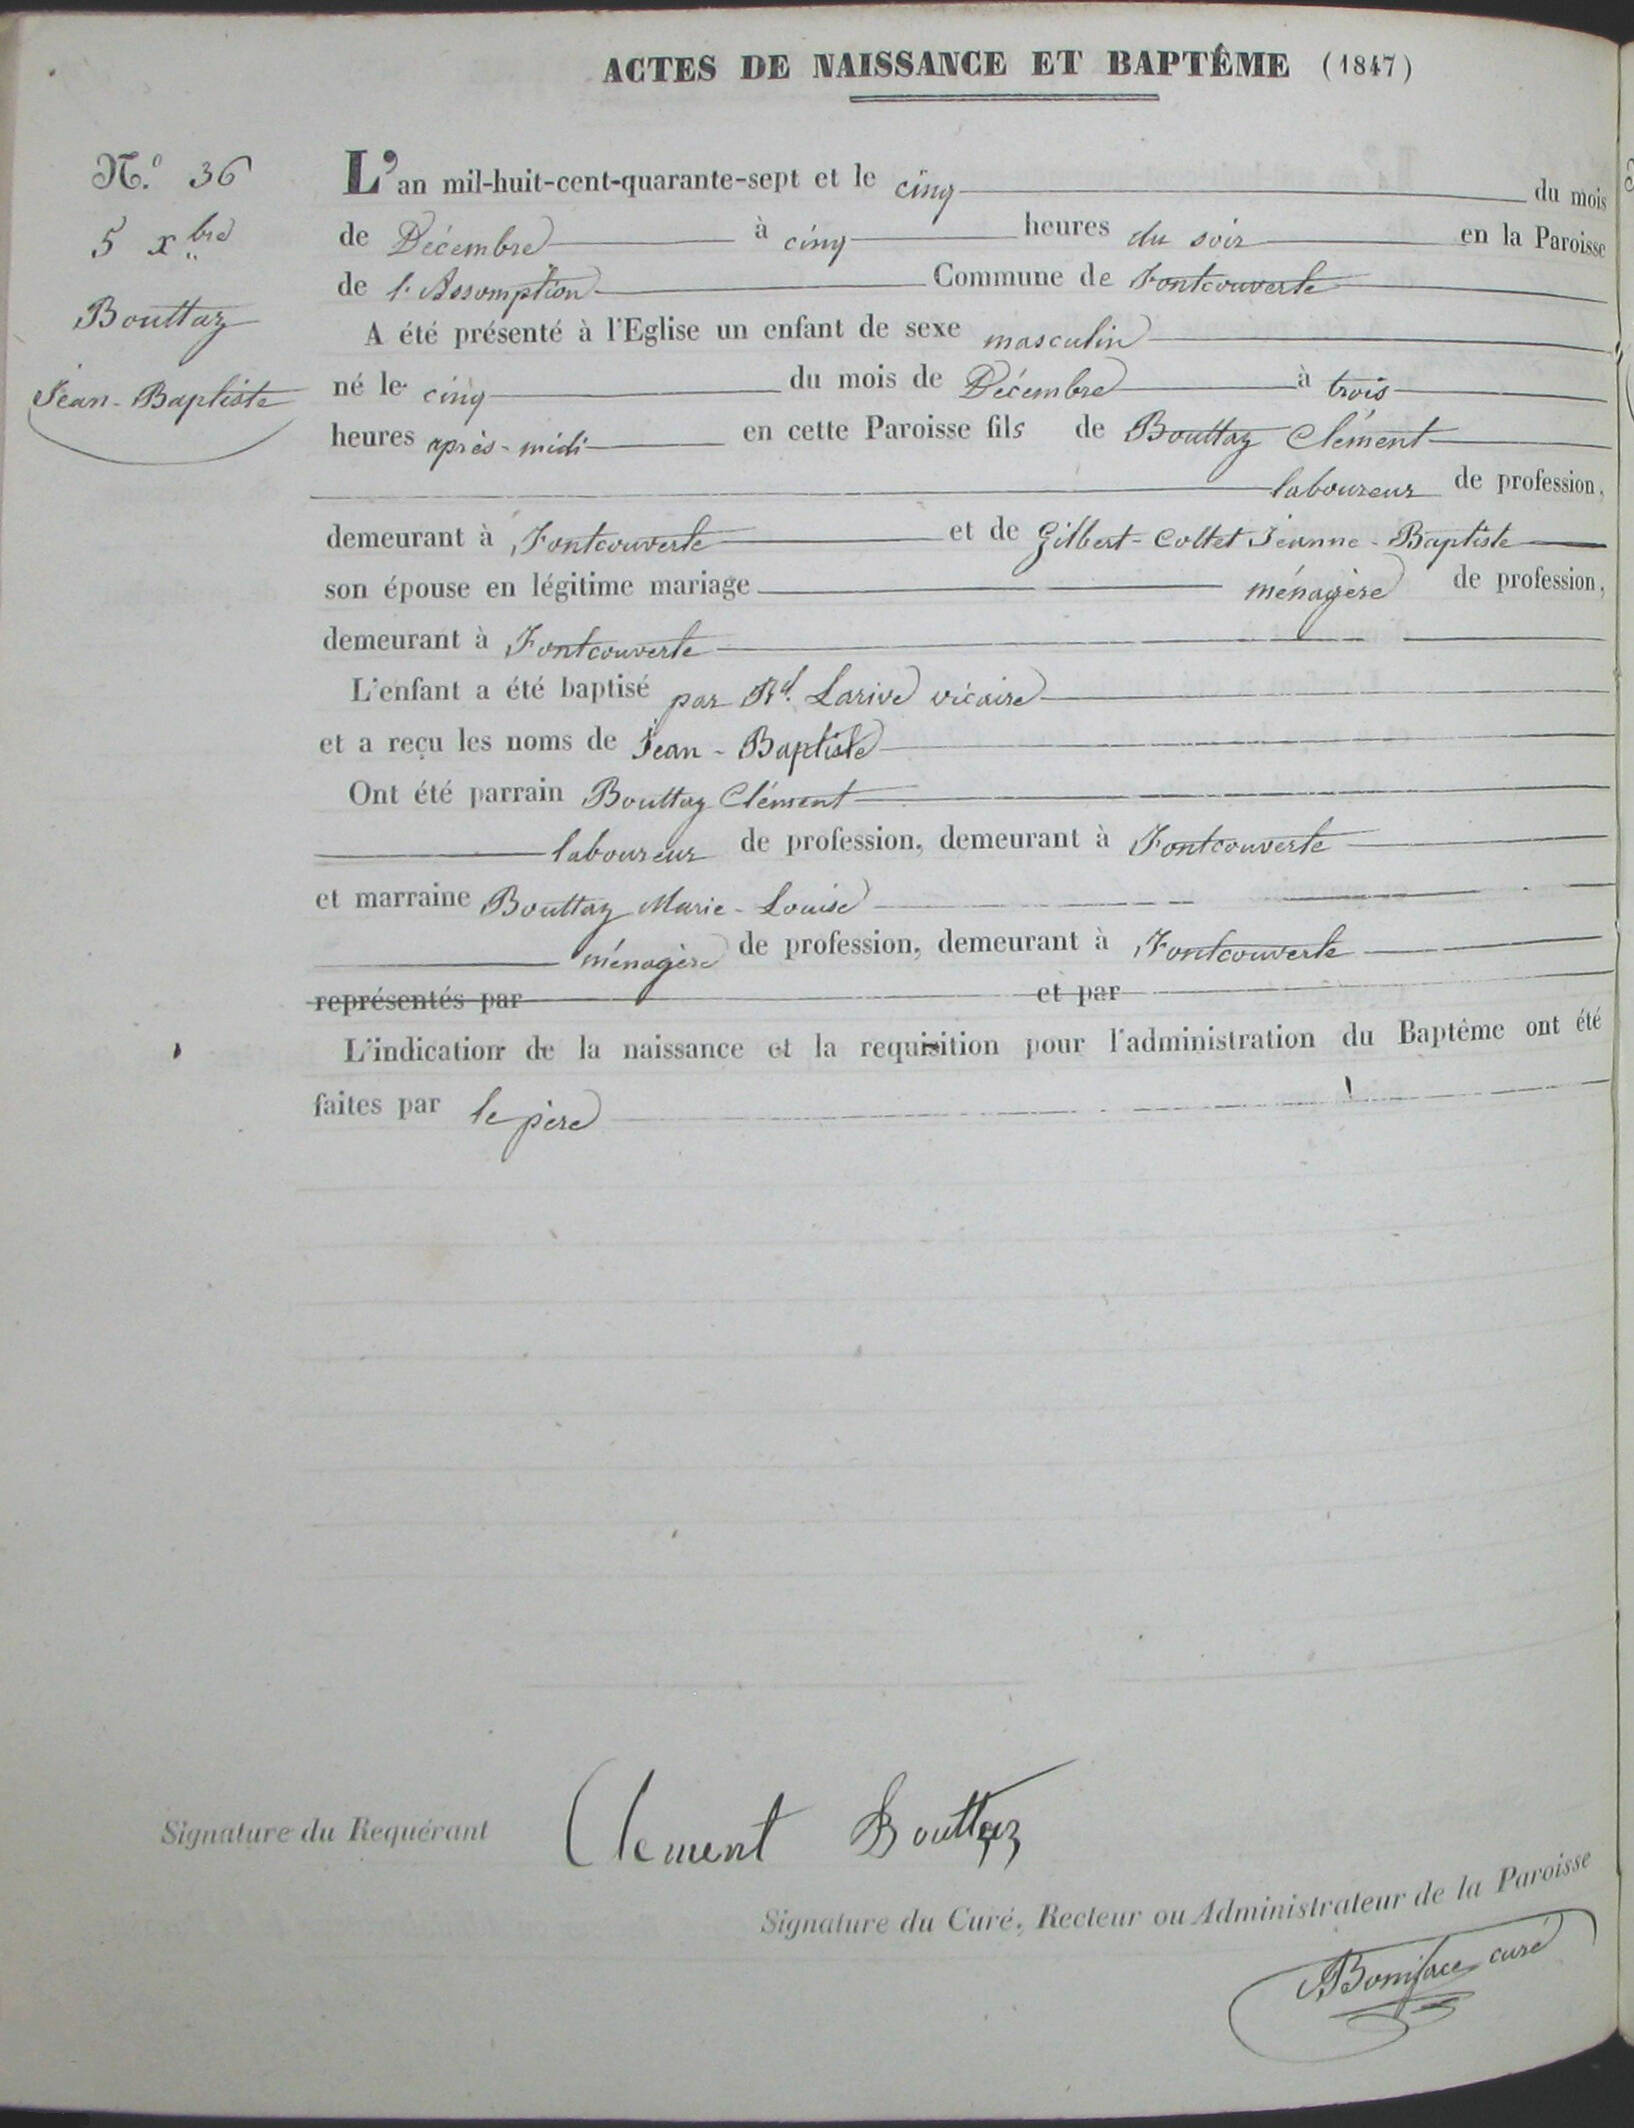 ACTES DE NAISSANCE ET BAPTÊME (1847)
N.° 36
5 xbre
Bouttaz
Jean-Baptiste
L'an mil-huit-cent-quarante-sept et le cinq du mois
de Décembre à cinq heures du soir en la Paroisse
de l'Assomption Commune de Fontcouverte
A été présenté à l'Eglise un enfant de sexe masculin
né le cinq du mois de Décembre à trois
heures après-midi en cette Paroisse fils de Bouttaz Clément
laboureur de profession,
demeurant à Fontcouverte et de Gilbert-Collet Jeanne-Baptiste
son épouse en légitime mariage ménagère de profession,
demeurant à Fontcouverte
L'enfant a été baptisé par Rd. Larive vicaire
et a reçu les noms de Jean-Baptiste
Ont été parrain Bouttaz Clément
laboureur de profession, demeurant à Fontcouverte
et marraine Bouttaz Marie-Louise
ménagère de profession, demeurant à Fontcouverte
représentés par et par
L'indication de la naissance et la requisition pour l'administration du Baptême ont été
faites par le père
Signature du Requérant Clement Bouttaz
Signature du Curé, Recteur ou Administrateur de la Paroisse
Boniface curé